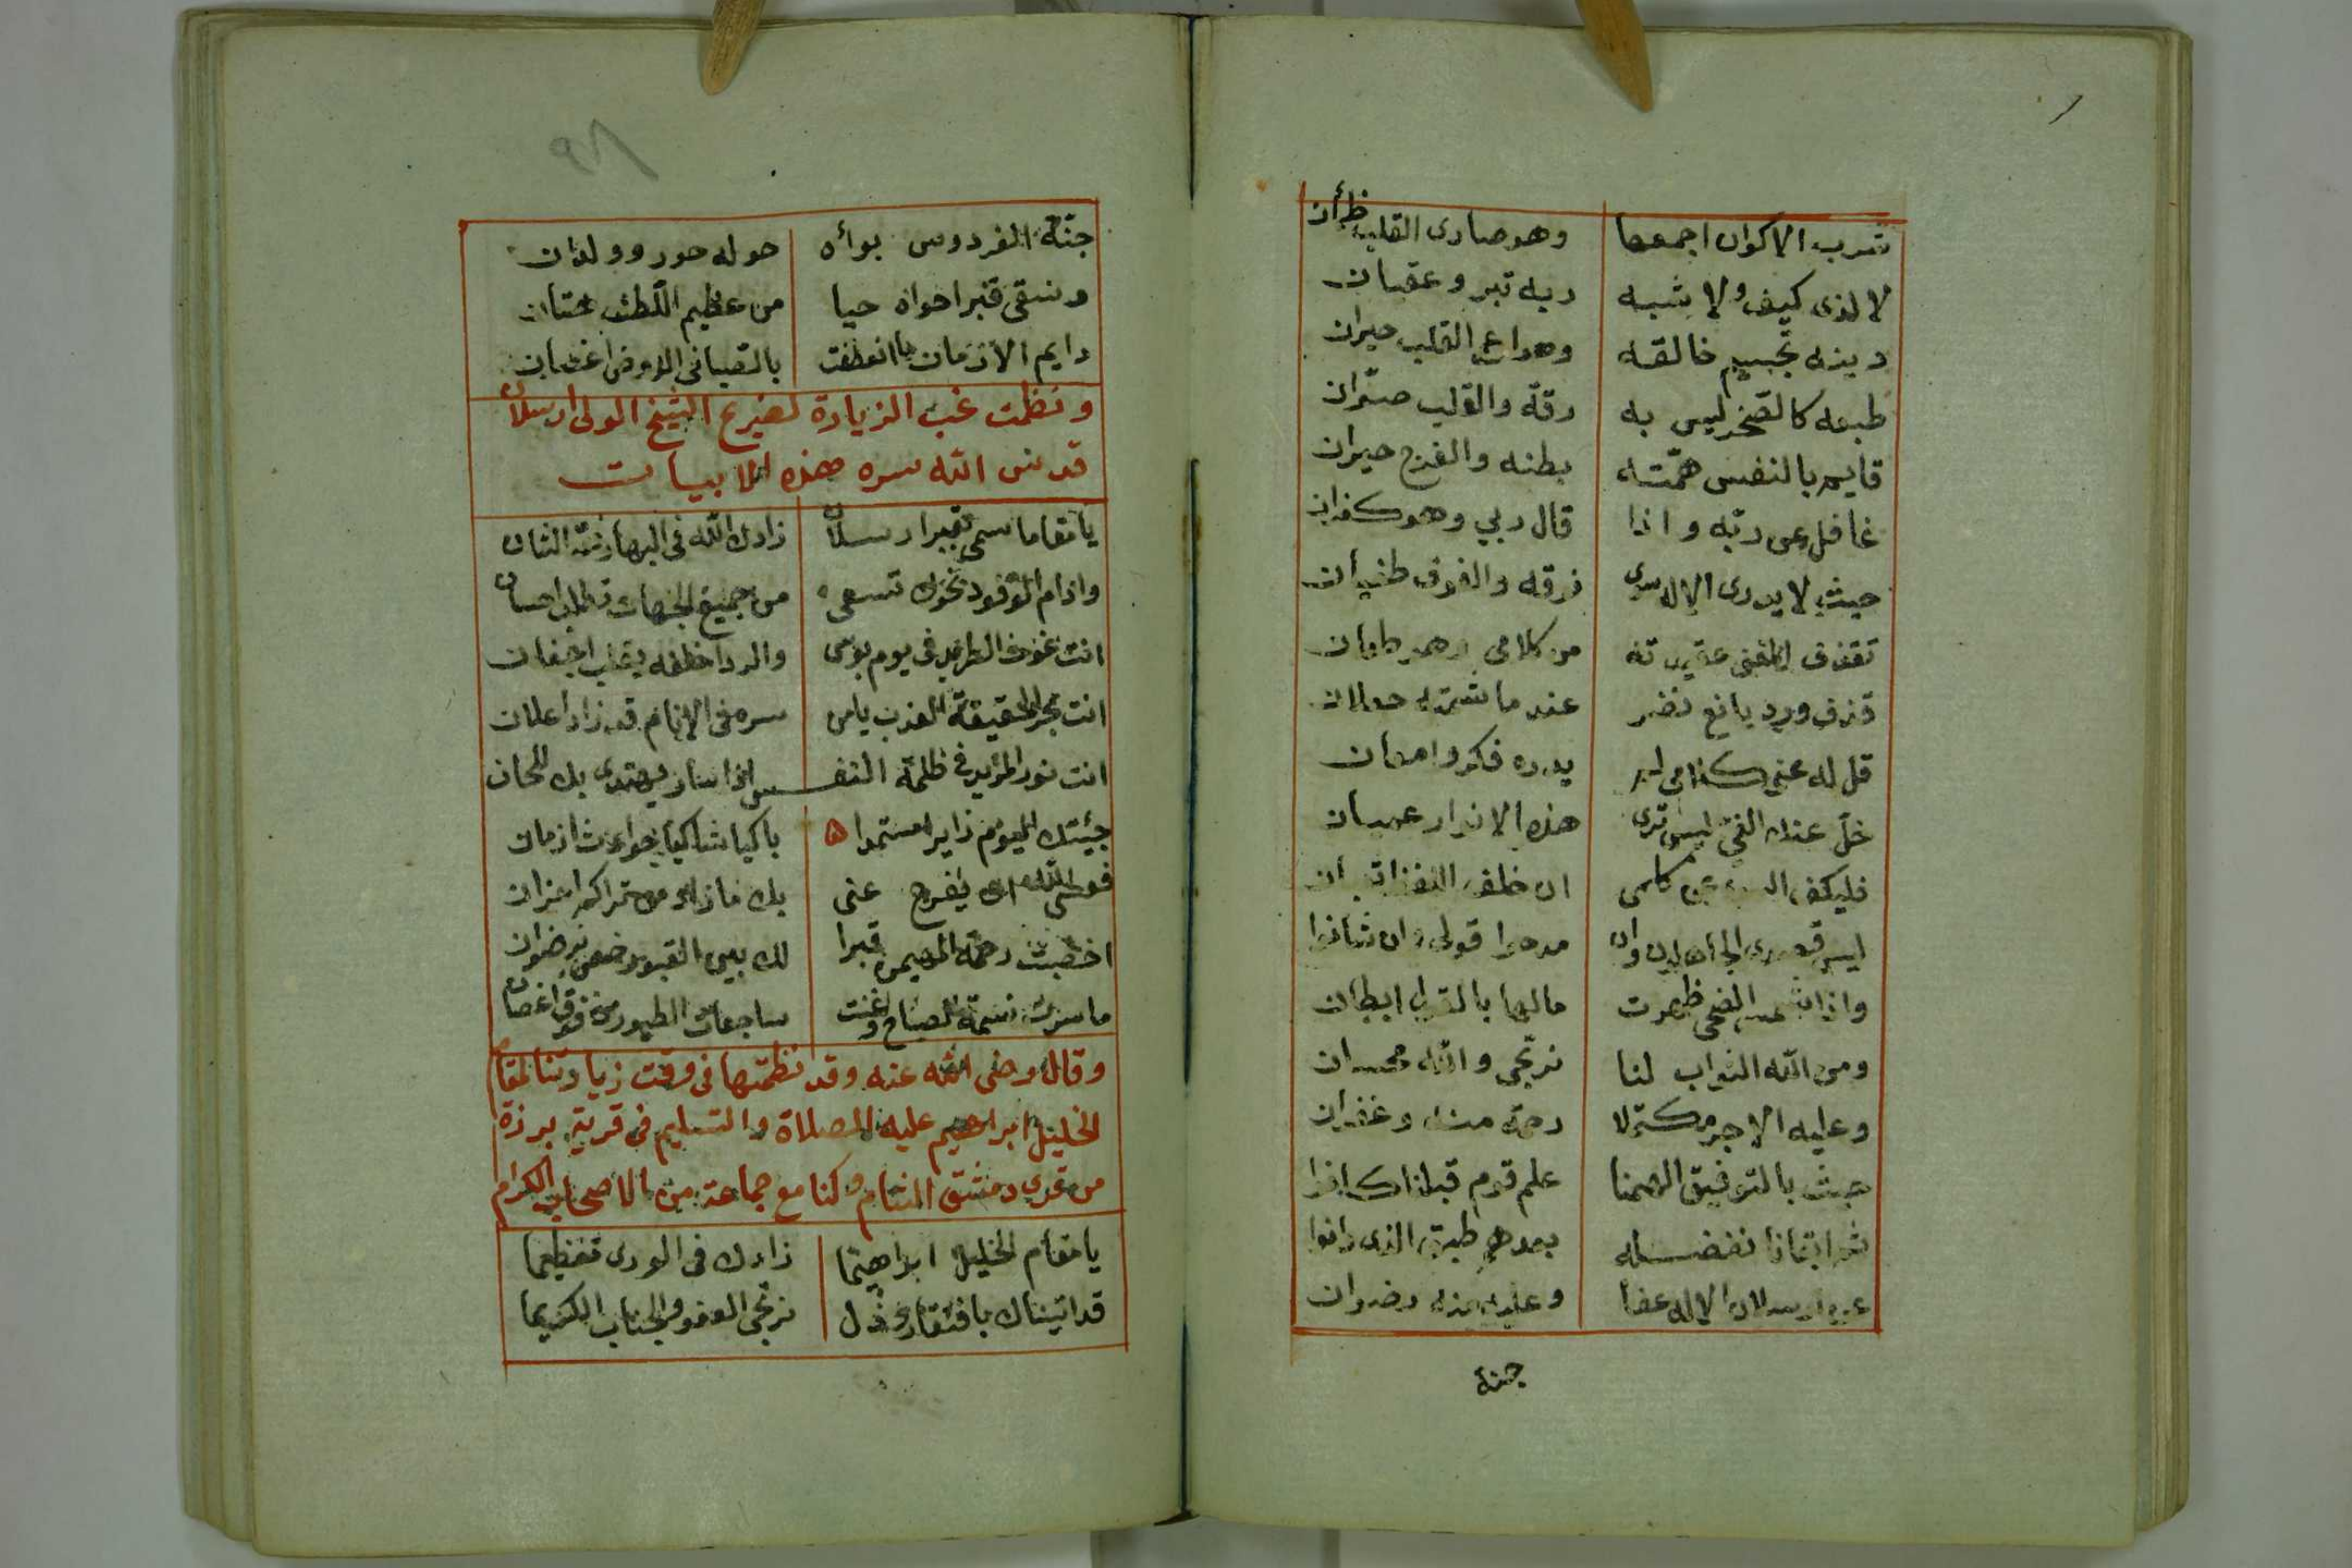 شرب الاكوان اجمعها وهو صادى القلب ظمأن
لا لذى كيف ولا شبه ربه تبر وعقيان
دينه تجسيم خالقه القلب حيران
طبعه كالصخر ليس به رقة والقلب صوّان
قايم بالنفس همّته بطنه والفرج حيران
غافل عن ربّه واذا قال ربي وهو كفران
حيث لا يدرى الاله سوى فرقه والفرق طغيان
من كلامى
قذف ورد يانع نضر عند ما
قل له عنى كلامى لم يدره فكر وامعان
خلّ عنك الغىّ ليس ترى هذه الانوار عميان
فليكف عن كلمى ان خلف
ليس قصدى الجاهلين وان مدحوا قولى وان شانوا
واذا شمس الضحى ظهرت مالها بالقول ابطان
ومن الله الثواب لنا نرتجى والله محسان
وعليه الاجر متّكلا رحمة منه وغفران
حيث بالتوفيق الهمنا علم قوم قبلنا كانوا
بعدهم طبق الذى دانوا
عن ارسلان الاله عفا وعليه منه رضوان
جنة
٩٨
جنّة الفردوس بوأه حوله حور وولدان
وسقى قبرا حواه حيا من عظيم اللّطف هتان
دايم الازمان ما انعطفت بالصبا فى الروض اغصان
ونظمت غب الزيارة لضريح الشيخ الولى ارسلان
قدس الله سره هذه الابيات
يا مقاما سمى بقبر ارسلان زادك الله فى البها رفعة الشان
وادام الوفود نحوك تسعى من جميع الجهات احسان
انت غوث الطريد فى يوم بؤس والردا خلفه يقلب اجفان
انت بحر الحقيقة العذب يا من سره فى الانام قد زاد اعلان
انت نور المريد فى ظلمة النفس اذا سار يهتدى بك اللحان
جئيتك اليوم زايرا مستمدا باكيا شاكيا حوادث ازمان
فعسى الله ان يفرج عنى بك ما زاد من تراكم احزان
اخصبت رحمة المهيمن قبرا لك بين القبور ضمن رضوان
ما سرت نسمة الصباح وغنت ساجعات الطيور من فوق اغصان
وقال رضى الله عنه وقد نظمتها فى وقت زيارتنا لمقام
الخليل ابراهيم عليه الصلاة والتسليم فى قرية برزة
من قرى دمشق الشام وكنا مع جماعة من الاصحاب الكرام
يا مقام الخليل ابراهيما زادك فى الورى تعظيما
قد اتيناك بافتقار وذل نرتجى العفو والجناب الكريما